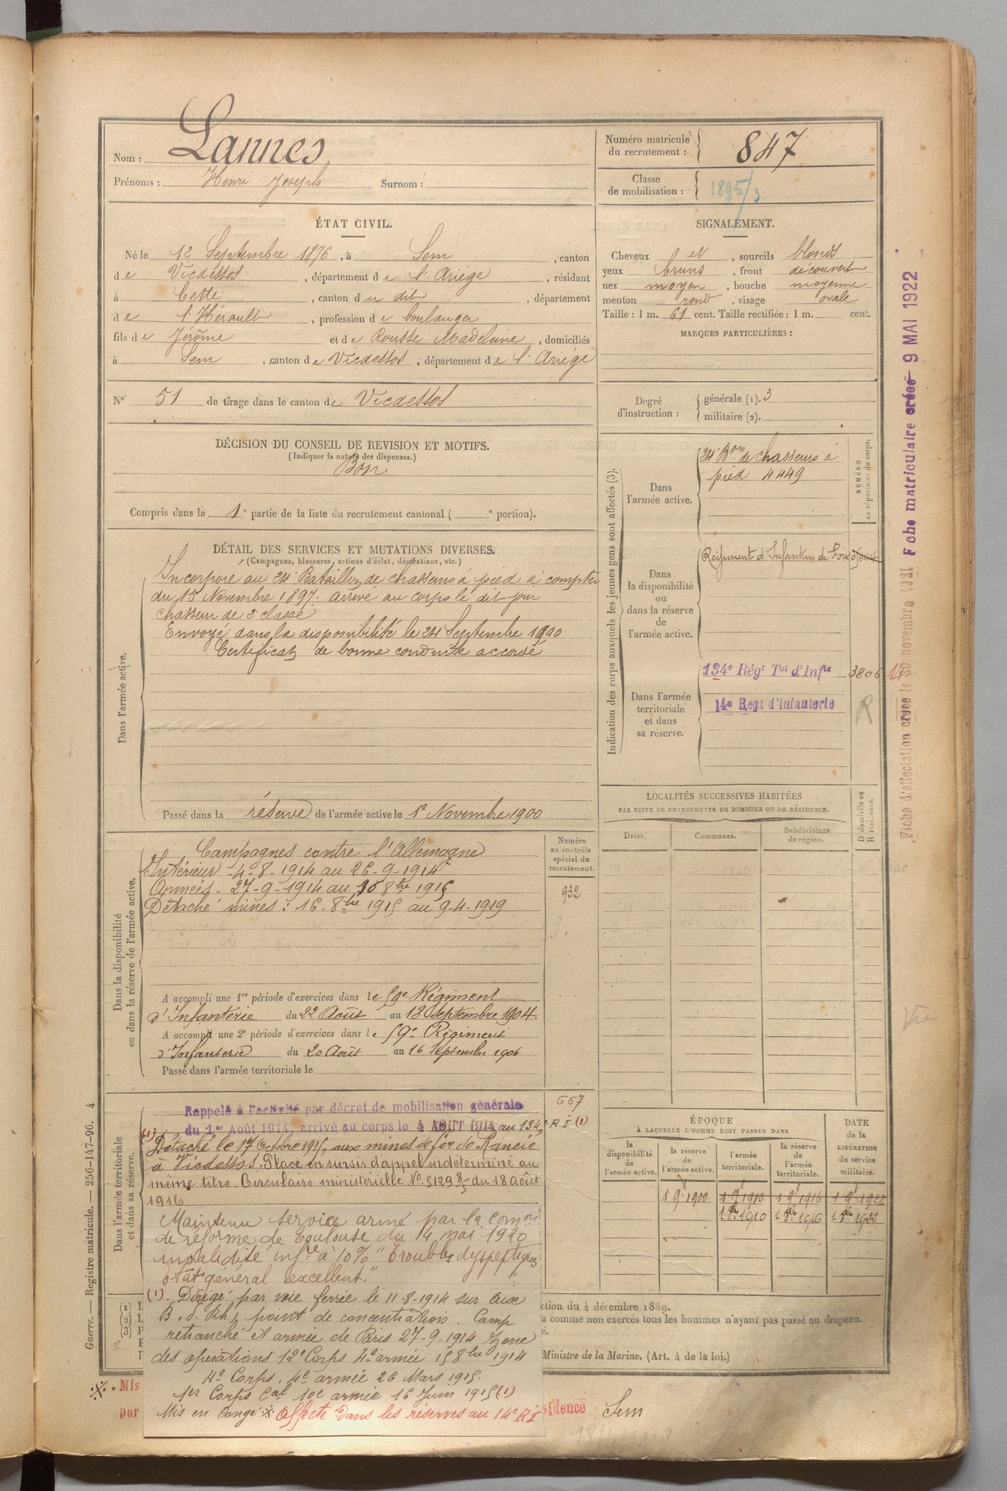 Nom : Lannes
Prénoms : Henri Joseph Surnom :
Numéro matricule du recrutement : 847
Classe de mobilisation : 1895/3
ÉTAT CIVIL.
Né le 12 Septembre 1876, à Sem, canton
de Vicdessos, département de l'Ariège, résidant
à Cette, canton du dit, département
de l'Hérault, profession de boulanger
fils de Jérôme et de Rousse Madeleine, domiciliés
à Sem, canton de Vicdessos, département de l'Ariège
SIGNALEMENT.
Cheveux et, sourcils blonds
yeux bruns, front découvert
nez moyen, bouche moyenne
menton rond, visage ovale
Taille : 1 m. 61 cent. Taille rectifiée : 1 m. cent.
MARQUES PARTICULIÈRES :
N° 51 de tirage dans le canton de Vicdessos
Degré d'instruction : générale (1). 3
militaire (2).
DÉCISION DU CONSEIL DE REVISION ET MOTIFS.
(Indiquer la nature des dispenses.)
Bon
Compris dans la 1e partie de la liste du recrutement cantonal ( e portion).
DÉTAIL DES SERVICES ET MUTATIONS DIVERSES.
(Campagnes, blessures, actions d'éclat, décorations, etc.)
Dans l'armée active.
Incorporé au 24e Bataillon de chasseurs à pied à compter
du 15 Novembre 1897. Arrivé au corps le dit jour
chasseur de 2e classe
Envoyé dans la disponibilité le 24 Septembre 1900
Certificat de bonne conduite accordé
Passé dans la réserve de l'armée active le 1er Novembre 1900
Indication des corps auxquels les jeunes gens sont affectés (3).
NUMÉRO au répertoire du corps.
Dans l'armée active.
24e Bon de chasseurs à
pied 4449
Dans la disponibilité ou dans la réserve de l'armée active.
Régiment d'Infanterie de Foix
Dans l'armée territoriale et dans sa réserve.
134e Régt Tal d'Infie 3806
14e Regt d'Infanterie R
Fiche matriculaire créée 9 MAI 1922
Fiche d'affectation créée le 20 novembre 1921
LOCALITÉS SUCCESSIVES HABITÉES
PAR SUITE DE CHANGEMENTS DE DOMICILE OU DE RÉSIDENCE.
Dates. Communes. Subdivisions de région. D domicile ou R résidence.
Dans la disponibilité
ou dans la réserve de l'armée active.
Numéro au contrôle spécial du recrutement.
932
Campagnes contre l'Allemagne
Intérieur 4-8-1914 au 26-9-1914
Armées 27-9-1914 au 8bre 1916
Détaché mines : 16-8bre 1915 au 9-4-1919
A accompli une 1re période d'exercices dans le 59e Régiment
d'Infanterie du 22 Août au 18 Septembre 1904
A accompli une 2e période d'exercices dans le 59e Régiment
d'Infanterie du 20 Août au 16 Septembre 1906
Passé dans l'armée territoriale le
Dans l'armée territoriale
et dans sa réserve.
667
Rappelé à l'activité par décret de mobilisation générale
du 1er Août 1914, arrivé au corps le 4 AOUT 1914 au 134e R I (1)
Détaché le 17 Octobre 1915 aux mines de fer de Rancié
à Vicdessos. Placé en sursis d'appel indéterminé au
même titre. Circulaire ministérielle du 18 août
1916
Maintenu service armé par la Comon
de réforme de Toulouse du 14 mai 1920
invalidité infre à 10% "troubles dyspeptiques
état général excellent."
(1). Dirigé par voie ferrée le 11-8-1914 sur Aix
B. d. Rh, point de concentration. Camp
retranché et armée de Paris 27-9-1914 zone
des opérations 12e Corps 4e armée 15 8bre 1914
4e Corps, 4e armée 26 Mars 1915.
1er Corps Cal 10e armée 16 Juin 1915 (1)
Mis en congé Affecté dans les réserves au 14e R I
ÉPOQUE
À LAQUELLE L'HOMME DOIT PASSER DANS
la disponibilité de l'armée active. la réserve de l'armée active. l'armée territoriale. la réserve de l'armée territoriale.
DATE de la LIBÉRATION du service militaire.
1 9bre 1900 1 9bre 1910 1 9bre 1916 1 9bre 1922
ction du 4 décembre 1889.
a comme non exercés tous les hommes n'ayant pas passé au drapeau.
Ministre de la Marine. (Art. 4 de la loi.)
Mis
par
sidence Sem
Guerre. — Registre matricule. — 256-147-96. 4